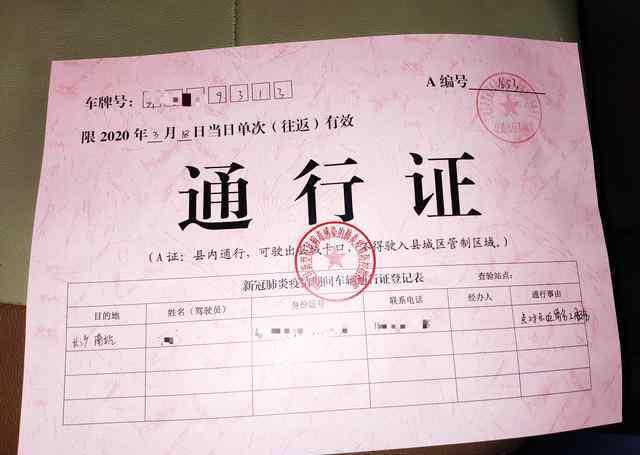 车牌号： 9313
A编号
限 2020 年 3 月 日当日单次（往返）有效
通行证
（A 证：县内通行，可驶出 卡口， 得驶入县城区管制区域。）
新冠肺炎疫 间车辆通行证登记表 查验站点：
目的地 姓名（驾驶员） 身份证号 联系电话 经办人 通行事由
长沙